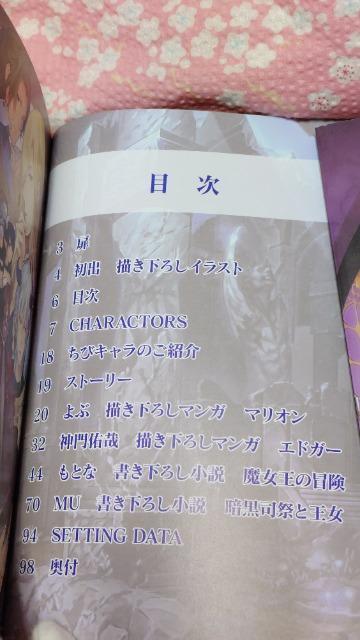 目次
3 扉
4 初出 描き下ろしイラスト
6 目次
7 CHARACTORS
18 ちびキャラのご紹介
19 ストーリー
20 よぶ 描き下ろしマンガ マリオン
32 神門佑哉 描き下ろしマンガ エドガー
44 もとな 書き下ろし小説 魔女王の冒険
70 MU 書き下ろし小説 暗黒司祭と王女
94 SETTING DATA
98 奥付